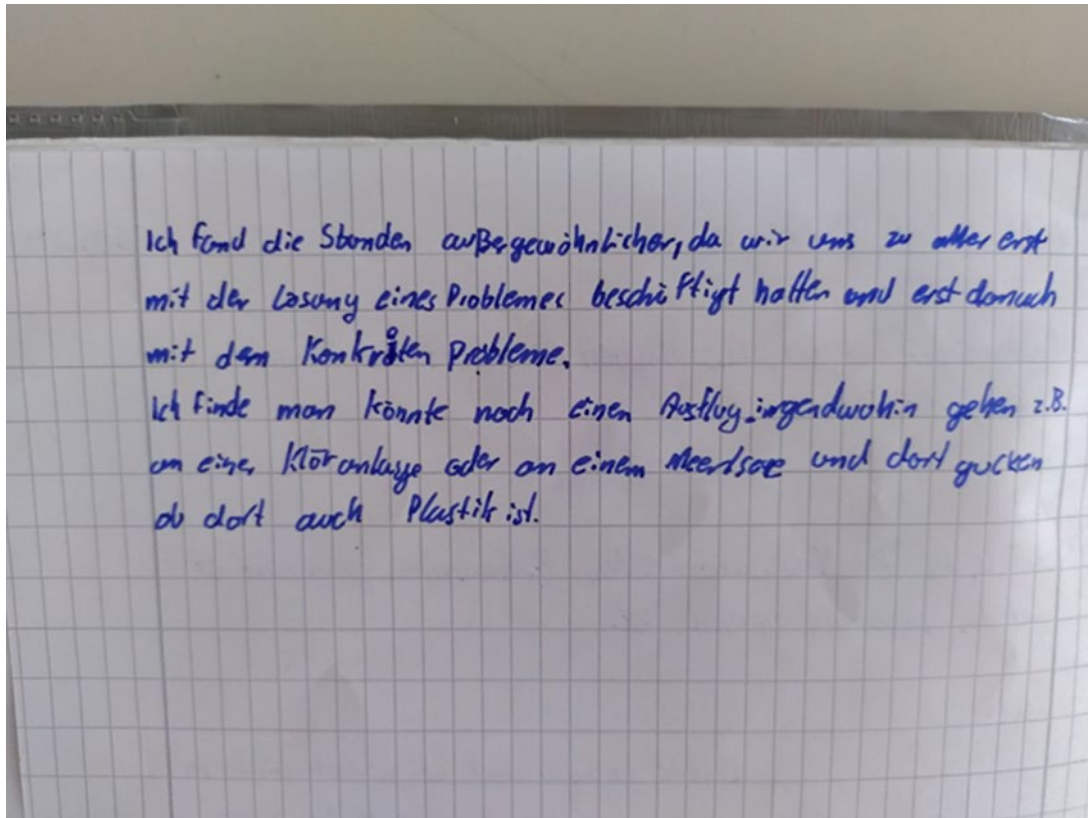 Ich fand die Stunden außergewöhnlicher, da wir uns zu aller erst
mit der Lösung eines Problemes beschäftigt hatten und erst danach
mit dem Konkreten Probleme.
Ich finde man könnte noch einen Ausflug irgendwohin gehen z.B.
an einer Kläranlage oder an einem und dort gucken
ob dort auch Plastik ist.